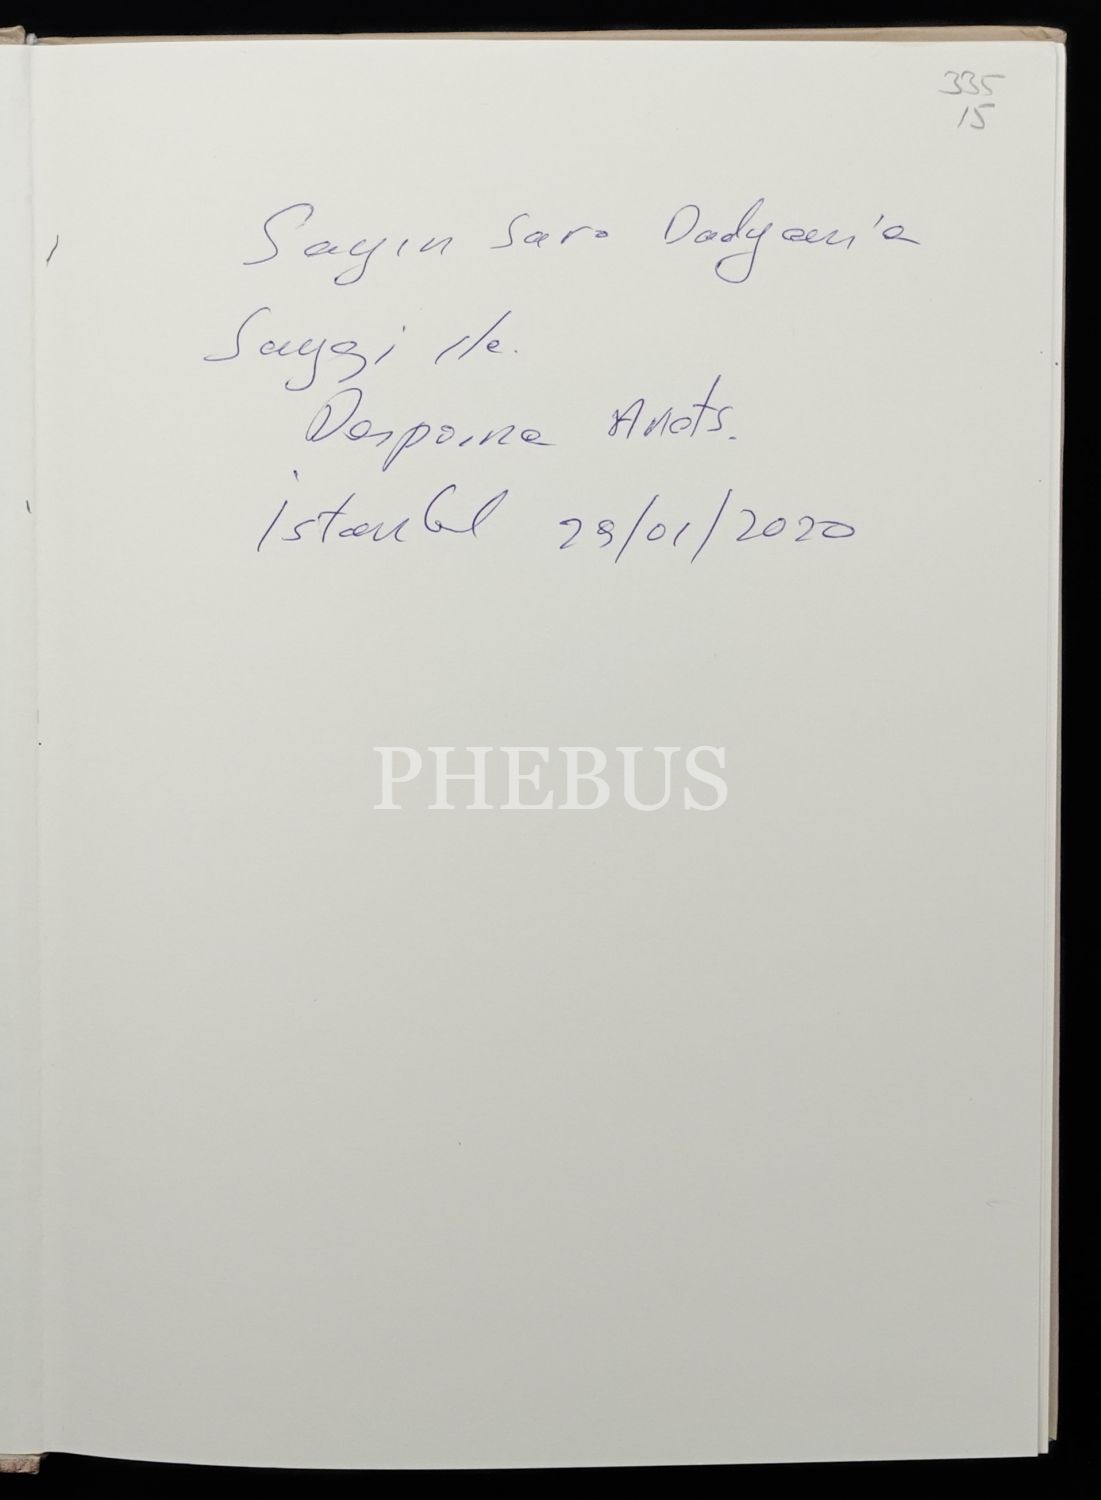 335
15
Sayın Saro Dadyan'a
Saygı ile.
Despoina Anats.
İstanbul 29/01/2020
PHEBUS